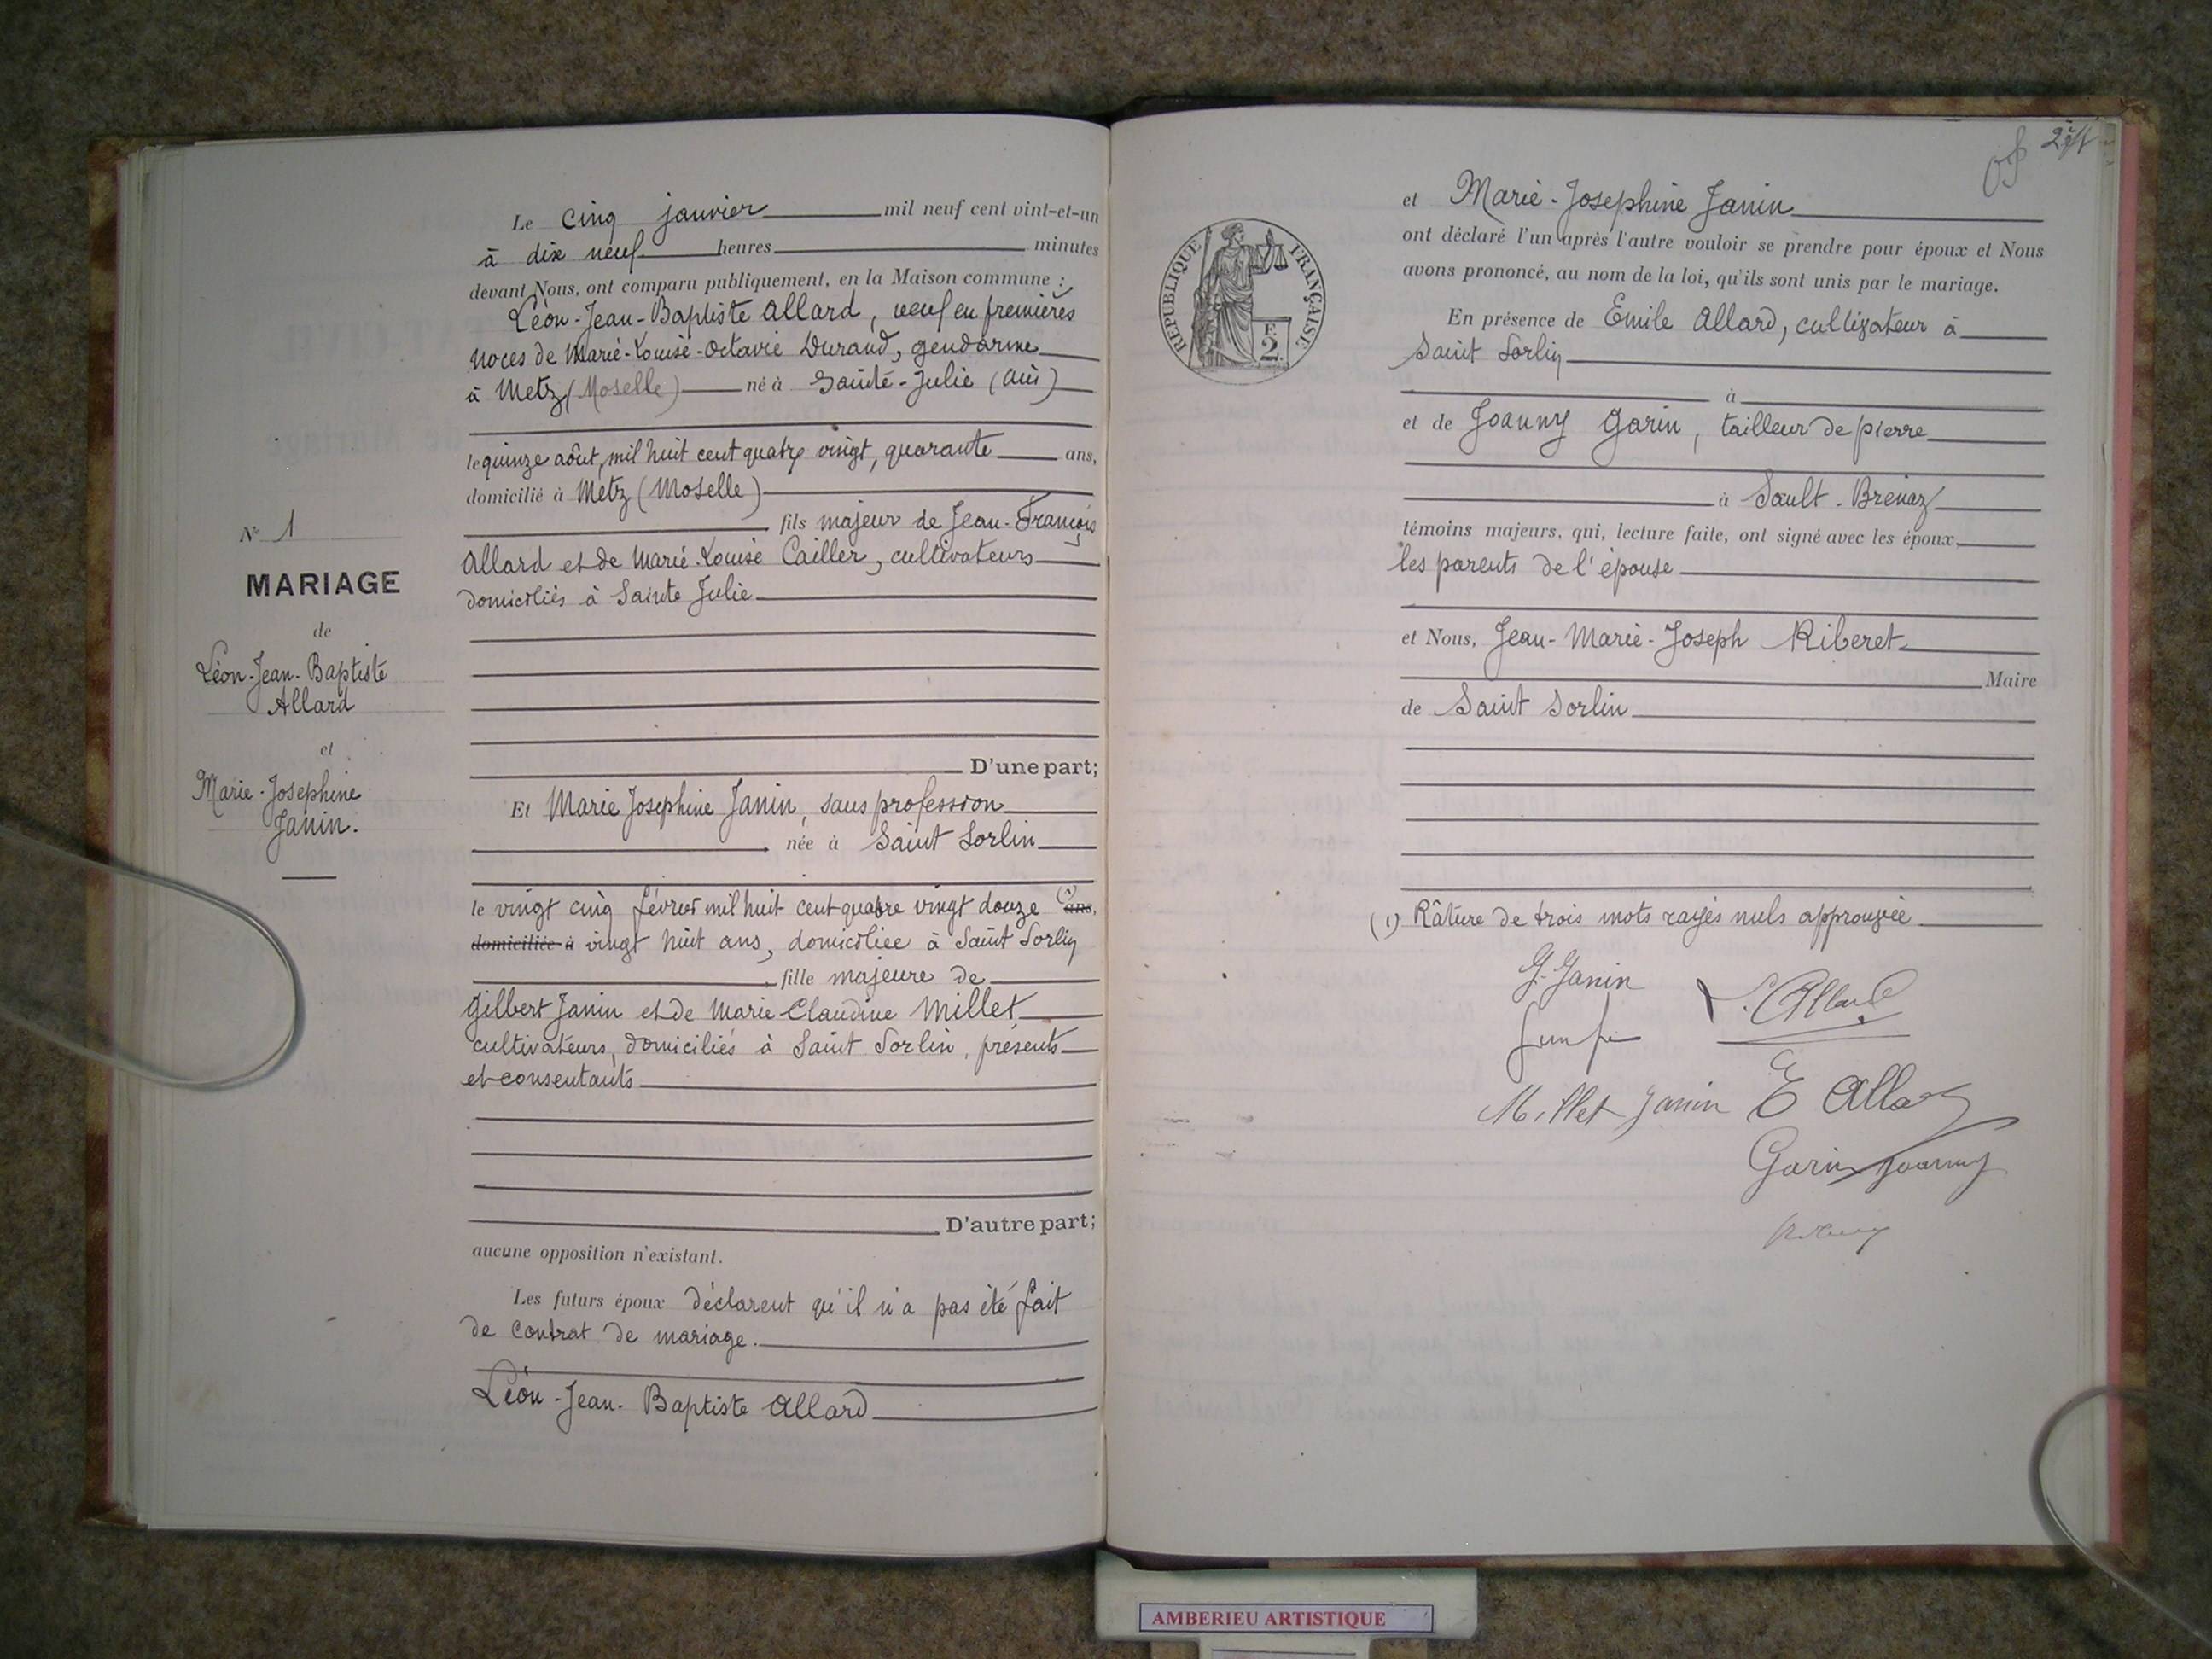 N° 1
MARIAGE
de
Léon-Jean-Baptiste
Allard
et
Marie-Josephine
Janin.
Le cinq janvier mil neuf cent vint-et-un
à dix neuf heures minutes
devant Nous, ont comparu publiquement, en la Maison commune :
Léon-Jean-Baptiste Allard, veuf en premières
noces de Marie-Louise-Octavie Durand, gendarme
à Metz (Moselle) né à Sainte-Julie (Ain)
le quinze août, mil huit cent quatre vingt, quarante ans,
domicilié à Metz (Moselle)
fils majeur de Jean-François
Allard et de Marie Louise Cailler, cultivateurs
domiciliés à Sainte Julie
D'une part;
Et Marie Josephine Janin, sans profession
née à Saint Sorlin
le vingt cinq février mil huit cent quatre vingt douze (1) ans,
domiciliée à vingt huit ans, domiciliée à Saint Sorlin
fille majeure de
Gilbert Janin et de Marie-Claudine Millet
cultivateurs, domiciliés à Saint Sorlin, présents
et consentants
D'autre part;
aucune opposition n'existant.
Les futurs époux déclarent qu'il n'a pas été fait
de contrat de mariage.
Léon-Jean-Baptiste Allard
2
RÉPUBLIQUE FRANÇAISE.
F.
2
et Marie-Josephine Janin
ont déclaré l'un après l'autre vouloir se prendre pour époux et Nous
avons prononcé, au nom de la loi, qu'ils sont unis par le mariage.
En présence de Emile Allard, cultivateur à
Saint Sorlin
à
et de Joanny Garin, tailleur de pierre
à Sault-Brénaz
témoins majeurs, qui, lecture faite, ont signé avec les époux
les parents de l'épouse
et Nous, Jean-Marie-Joseph Riberet
Maire
de Saint Sorlin
(1) Râture de trois mots rayés nuls approuvée
G. Janin
L. Allard
Millet Janin E Allard
Garin Joanny
AMBERIEU ARTISTIQUE